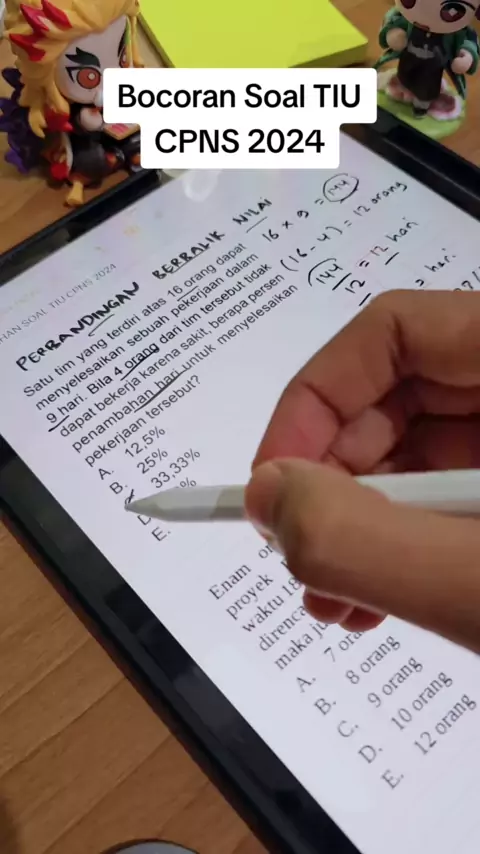 Bocoran Soal TIU
CPNS 2024
HAN SOAL TIU CPNS 2024
PERBANDINGAN BERBALIK NILAI
Satu tim yang terdiri atas 16 orang dapat
menyelesaikan sebuah pekerjaan dalam
9 hari. Bila 4 orang dari tim tersebut tidak
dapat bekerja karena sakit, berapa persen
penambahan hari untuk menyelesaikan
pekerjaan tersebut?
A. 12,5%
B. 25%
33,33%
D
E.
16 × 9 = 144
(16 - 4) = 12 orang
144
12 = 12 hari
hari
Enam
proyek
waktu 18
direnca
maka ju
A. 7 ora
B. 8 orang
C. 9 orang
D. 10 orang
E. 12 orang